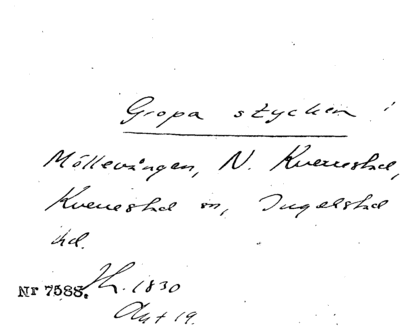 Gropa stycken i
Möllevången, N. Kverrestad,
Kverrestad sn, Ingelstad
hd.
Nr 7588. Jh. 1830
Akt 19.